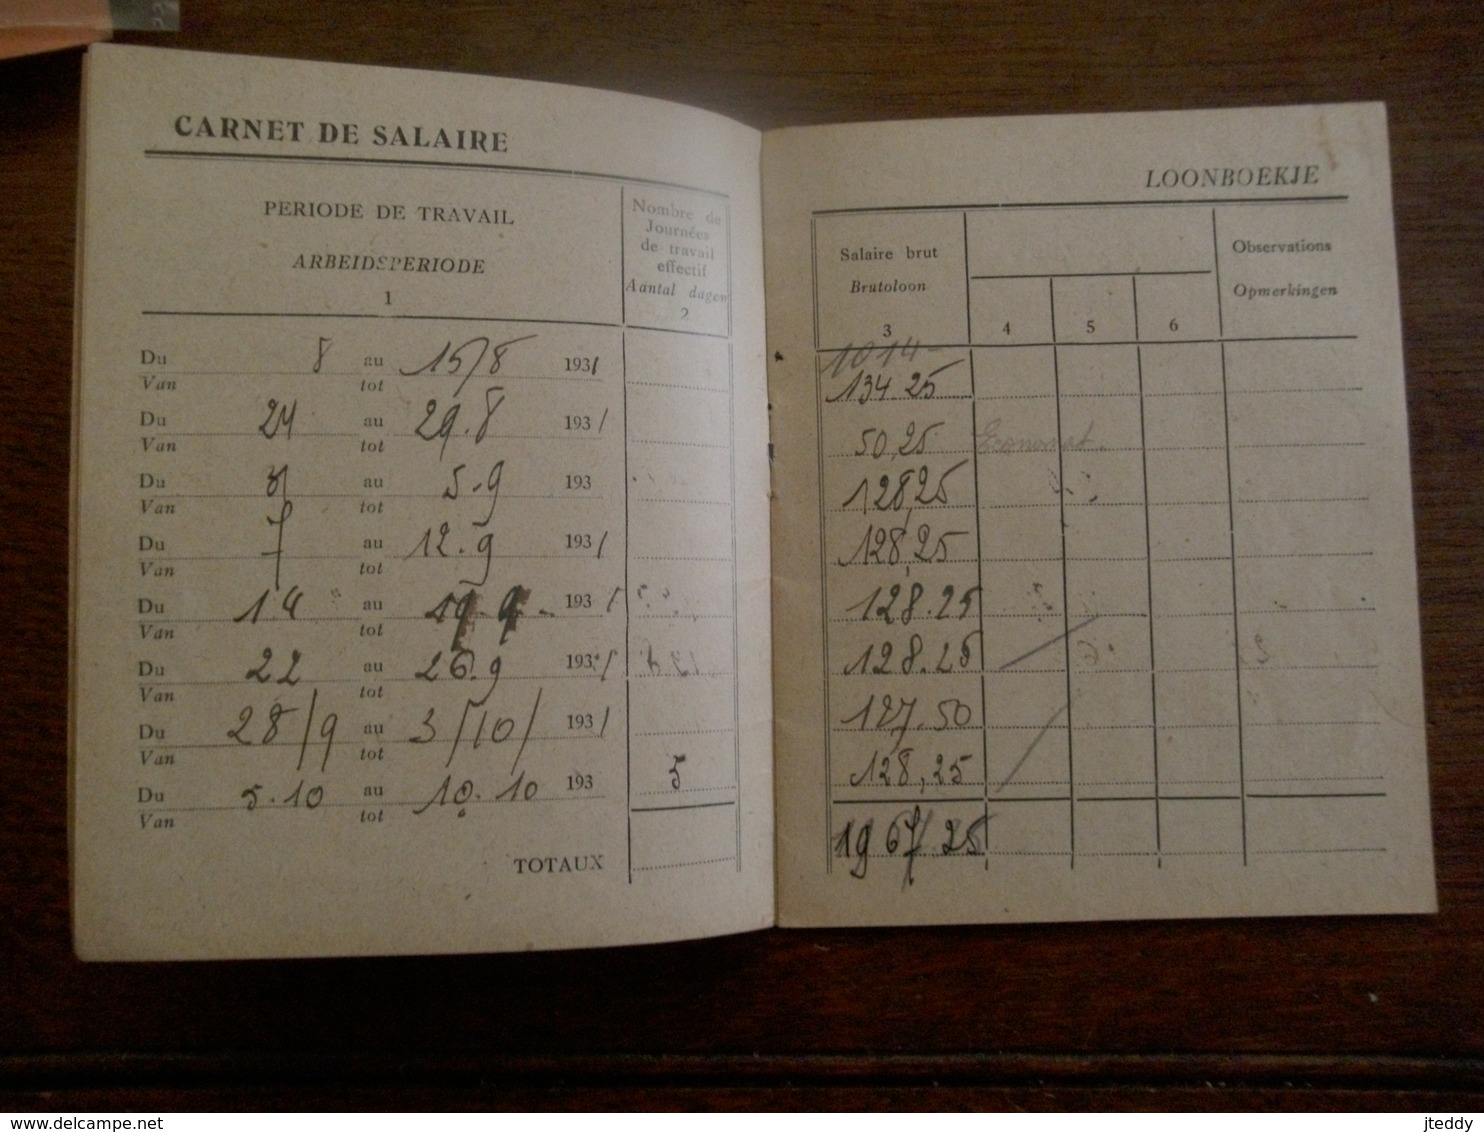 CARNET DE SALAIRE
PERIODE DE TRAVAIL
ARBEIDSPERIODE
1
Nombre de
Journées
de travail
effectif
Aantal dagen
2
Du 8 au 15/8 1931
Van tot
Du 24 au 29.8 193/
Van tot
Du au 5.9 193
Van tot
Du 7 au 12.9 193/
Van tot
Du 14 au 19.9. 193/
Van tot
Du 22 au 26.9 193/
Van tot
Du 28/9 au 3/10/ 193/
Van tot
Du 5.10 au 10.10 193 5
Van tot
TOTAUX
LOONBOEKJE
Salaire brut
Brutoloon
3
4
5
6
Observations
Opmerkingen
1014-
134.25
50,25 Economat.
128,25
128,25
128.25
128.25
127.50
128,25
1967/25
delcampe.net
jteddy